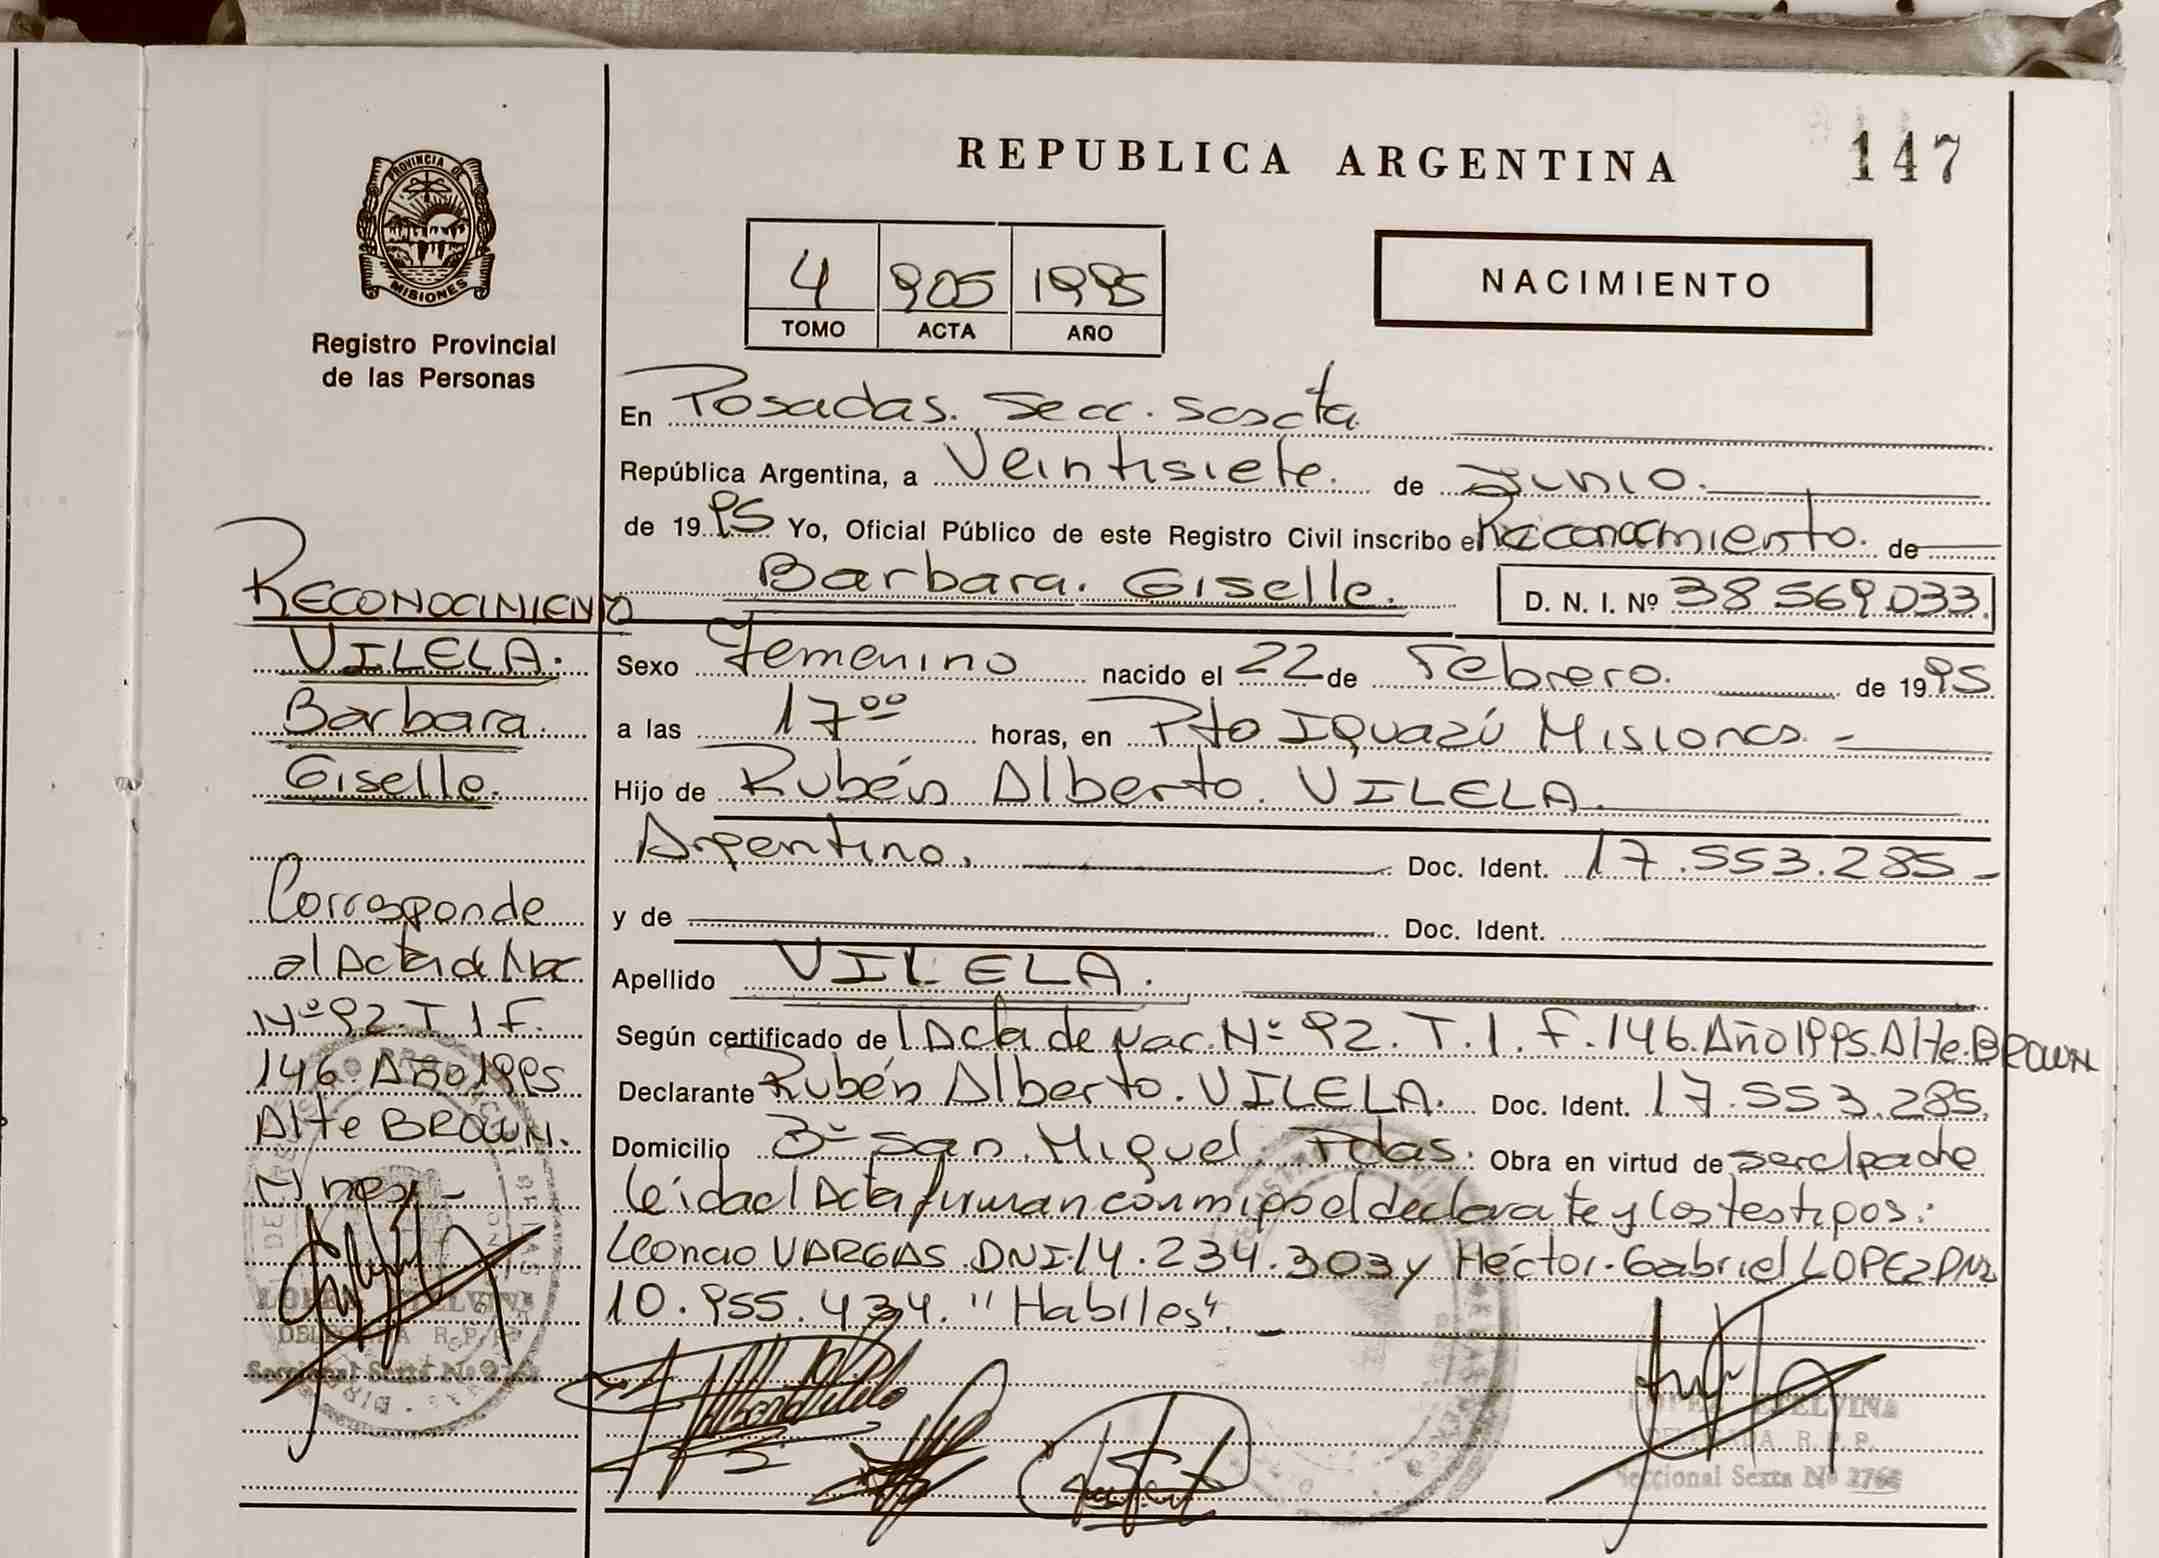 REPUBLICA ARGENTINA
147
PROVINCIA DE
MISIONES
Registro Provincial
de las Personas
4 905 1995
TOMO ACTA AÑO
NACIMIENTO
En Posadas. Secc. Sexta
República Argentina, a Veintisiete. de Junio.
de 1995 Yo, Oficial Público de este Registro Civil inscribo el Reconocimiento. de
Barbara. Giselle. D. N. I. Nº 38 569.033.
Sexo Femenino nacido el 22 de Febrero. de 1995
a las 17⁰⁰ horas, en Pto Iguazú Misiones. -
Hijo de Rubén Alberto. VILELA.
Argentino. Doc. Ident. 17.553.285 -
y de Doc. Ident.
Apellido VILELA.
Según certificado de l Acta de Nac. Nº 92. T. 1. F. 146. Año 1995. Alte. BROWN
Declarante Rubén Alberto. VILELA. Doc. Ident. 17.553.285.
Domicilio Bº San Miguel. Pdas. Obra en virtud de ser el padre
leida el Acta firman conmigo el declarate y los testigos:
Leoncio VARGAS. DNI. 14.234.303 y Héctor. Gabriel LOPEZ DNI
10.955.434. "Habiles". -
RECONOCIMIENTO
VILELA.
Barbara
Giselle.
Corresponde
al Acta de Nac
Nº 92. T 1 F.
146. Año 1995
Alte BROWN.
Mnes. -
LOPEZ ETELVINA
DELEGADA R. P. P.
Seccional Sexta Nº
LOPEZ ETELVINA
DELEGADA R. P. P.
Seccional Sexta Nº 2766